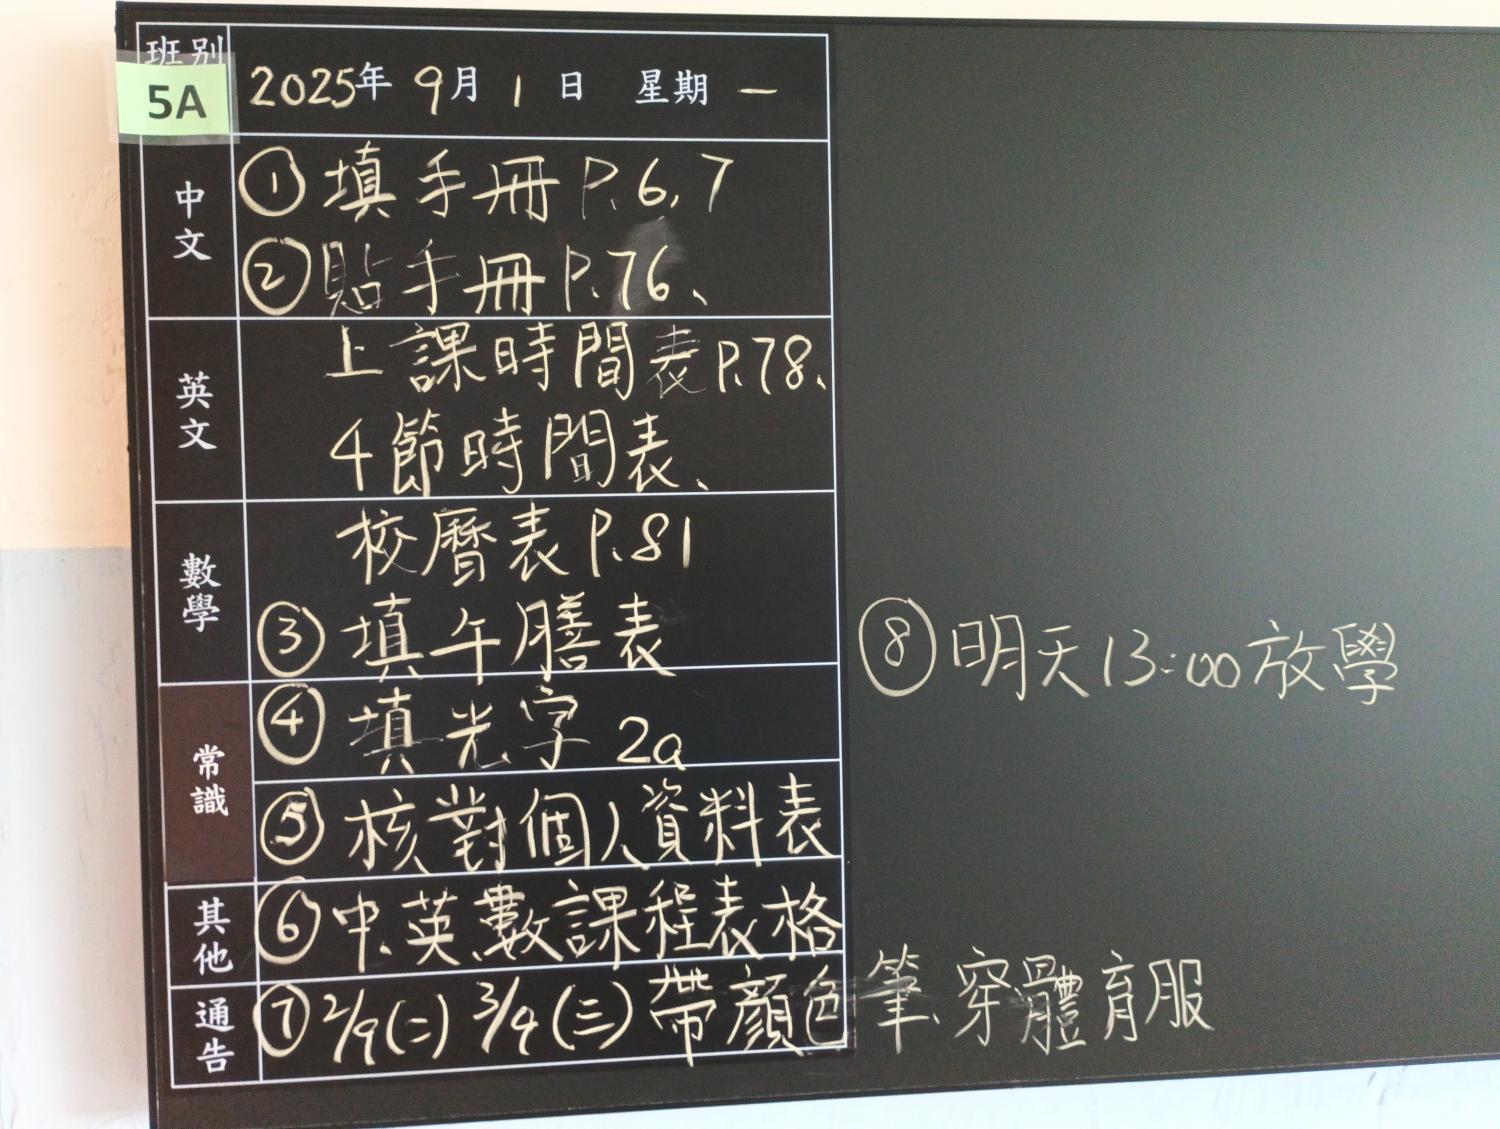 班別
5A
2025年 9月 1日 星期一
中文
① 填手冊P.6,7
② 貼手冊P.76、
英文
上課時間表P.78、
4節時間表、
數學
校曆表P.81
③ 填午膳表
④ 填光字 2a
常識
⑤ 核對個人資料表
其他
⑥ 中、英、數課程表格
通告
⑦ 2/9(二) 3/9(三) 帶顏色筆、穿體育服
⑧ 明天13:00放學